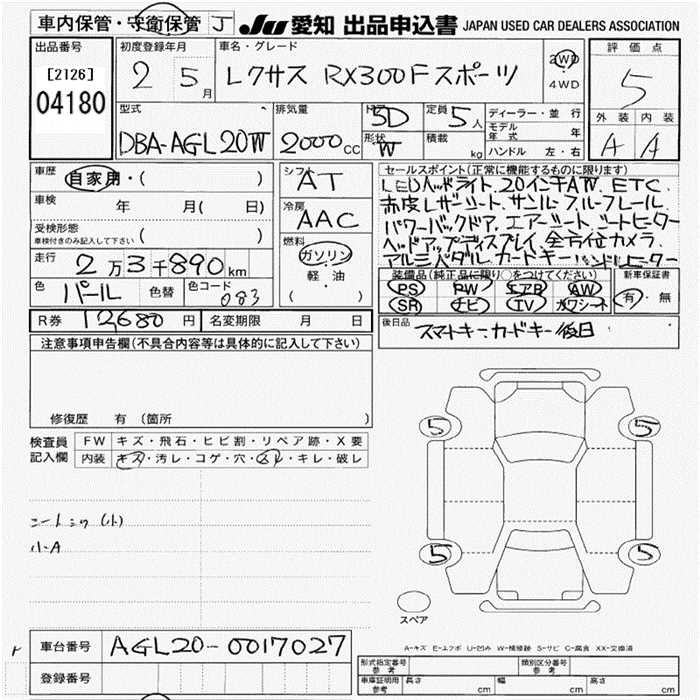 車内保管・守衛保管 J
JU 愛知 出品申込書 JAPAN USED CAR DEALERS ASSOCIATION
出品番号
[2126]
04180
初度登録年月
2 5月
車名・グレード
レクサス RX300Fスポーツ
2WD
4WD
評価点
5
外装 内装
A A
型式
DBA-AGL20W
排気量
2000cc
ドア
5D
形状
W
定員
5人
積載
kg
ディーラー・並行
モデル年式 年
ハンドル 左・右
車歴
自家用・( )
車検
年 月( 日)
受検形態
車検付きのみ記入して下さい ( )
走行
2万3千890km
色
パール
色替
色コード
083
シフト
AT
冷房
AAC
燃料
ガソリン
軽・油
( )
セールスポイント(正常に機能するものに限ります)
LEDヘッドライト、20インチAW、ETC
赤皮レザーシート、サンルーフ、ルーフレール
パワーバックドア、エアーシート、シートヒーター
ヘッドアップディスプレイ、全方位カメラ
アルミペダル、カードキー、ハンドルヒーター
装備品(純正品に限り○をつけてください)
PS PW エアB AW
SR ナビ TV カワシート
新車保証書
有・無
R券 12680円
名変期限 月 日
後日品
スマートキー、カードキー後日
注意事項申告欄(不具合内容等は具体的に記入して下さい)
修復歴 有 (箇所 )
検査員記入欄
FW キズ・飛石・ヒビ割・リペア跡・X要
内装 キズ・汚レ・コゲ・穴・スレ・キレ・破レ
シートシワ(小)
小A
5 5
5 5
スペア
A-キズ E-エクボ U-凹み W-補修跡 S-サビ C-腐食 XX-交換済
車台番号
AGL20-0017027
登録番号
形式指定番号
参考
類別区分番号
参考
車庫証明用
参考
長さ cm 幅 cm 高さ cm